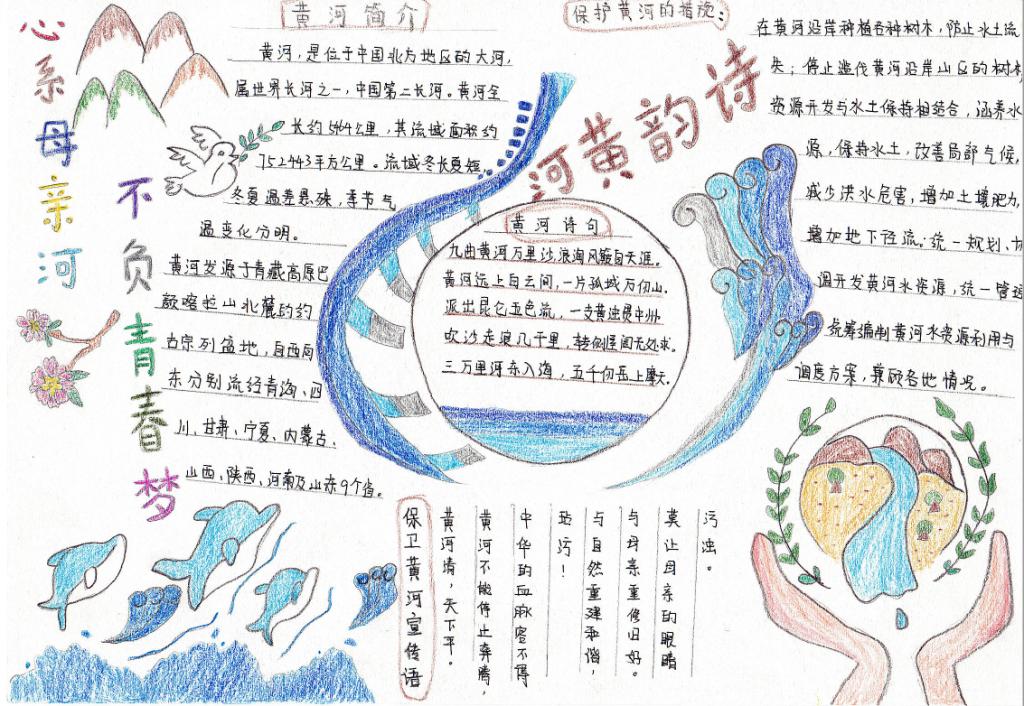 心系母亲河
不负青春梦
黄河简介
黄河，是位于中国北方地区的大河，
属世界长河之一，中国第二长河。黄河全
长约5464公里，其流域面积约
752443平方公里。流域冬长夏短，
冬夏温差悬殊，季节气
温变化分明。
黄河发源于青藏高原巴
颜喀拉山北麓的约
古宗列盆地，自西向
东分别流经青海、四
川、甘肃、宁夏、内蒙古、
山西、陕西、河南及山东9个省。
黄韵诗河
黄河诗句
九曲黄河万里沙，浪淘风簸自天涯。
黄河远上白云间，一片孤城万仞山。
派出昆仑五色流，一支黄浊贯中州。
吹沙走浪几千里，转侧屋闾无处求。
三万里河东入海，五千仞岳上摩天。
保护黄河的措施：
在黄河沿岸种植各种树木，防止水土流
失；停止滥伐黄河沿岸山区的树木
资源开发与水土保持相结合，涵养水
源，保持水土，改善局部气候，
减少洪水危害，增加土壤肥力，
增加地下径流。统一规划、
调开发黄河水资源，统一管
统筹编制黄河水资源利用与
调度方案，兼顾各地情况。
保卫黄河宣传语
黄河清，天下平。
黄河不能停止奔腾，
中华的血脉容不得
玷污！
与自然重建和谐，
与母亲重修旧好。
莫让母亲的眼睛
污浊。